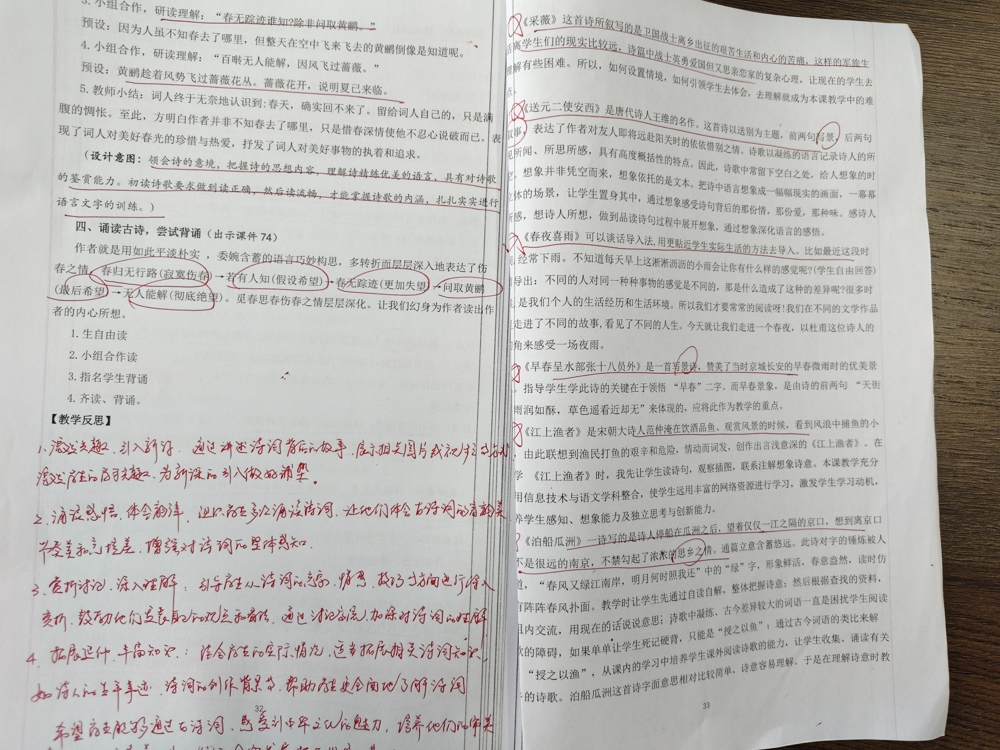 3.小组合作，研读理解：“春无踪迹谁知?除非问取黄鹂。”
预设：因为人虽不知春去了哪里，但整天在空中飞来飞去的黄鹂倒像是知道呢。
4.小组合作，研读理解：“百啭无人能解，因风飞过蔷薇。”
预设：黄鹂趁着风势飞过蔷薇花丛。蔷薇花开，说明夏已来临。
5.教师小结：词人终于无奈地认识到:春天，确实回不来了。留给词人自己的，只是满
腹的惆怅。至此，方明白作者并非不知春去了哪里，只是惜春深情使他不忍心说破而已。表
现了词人对美好春光的珍惜与热爱，抒发了词人对美好事物的执着和追求。
（设计意图：领会诗的意境，把握诗的思想内容，理解诗精炼优美的语言，具有对诗歌
的鉴赏能力。初读诗歌要求做到读正确，然后读流畅，才能掌握诗歌的内涵，扎扎实实进行
语言文字的训练。）
四、诵读古诗，尝试背诵（出示课件 74）
作者就是用如此平淡朴实 ，委婉含蓄的语言巧妙构思，多转折而层层深入地表达了伤
春之情。春归无行路(寂寞伤春)→若有人知(假设希望)→春无踪迹(更加失望)→问取黄鹂
(最后希望)→无人能解(彻底绝望)。觅春思春伤春之情层层深化。让我们幻身为作者读出作
者的内心所想。
1.生自由读
2.小组合作读
3.指名学生背诵
4.齐读、背诵。
【教学反思】
1.激发兴趣，引入新诗：通过讲述诗词背后的故事，展示相关图片或视频
激发学生的学习兴趣，为新课的引入做好铺垫。
2.诵读感悟，体会韵律：组织学生多次诵读诗词，让他们体会古诗词的音韵美
节奏美和意境美，增强对诗词的整体感知。
3.赏析讨论，深入理解：引导学生从诗词的意象、情感、技巧等方面进行深入
赏析，鼓励他们发表自己的观点和看法，通过讨论交流，加深对诗词的理解
4.拓展延伸，丰富知识：结合学生的实际情况，适当拓展相关诗词知识，
如诗人的生平事迹、诗词的创作背景等，帮助学生更全面地了解诗词
32
希望学生能够通过古诗词，感受到中华文化的魅力，培养他们的审美
《采薇》这首诗所叙写的是卫国战士离乡出征的艰苦生活和内心的苦痛，这样的军旅生
活离学生们的现实比较远，诗篇中战士英勇爱国但又思亲恋家的复杂心理，让现在的学生去
理解有些困难。所以，如何设置情境，如何引领学生去体会，去理解就成为本课教学中的难
点。
《送元二使安西》是唐代诗人王维的名作。这首诗以送别为主题，前两句写景，后两句
叙事，表达了作者对友人即将远赴阳关时的依依惜别之情。诗歌以凝练的语言记录诗人的所
见所闻、所思所感，具有高度概括性的特点。因此，诗歌中常留下空白之处，给人想象的时
，想象并非凭空而来，想象依托的是文本。把诗中语言想象成一幅幅现实的画面，一幕幕
立体的场景，让学生置身其中，通过想象感受诗句背后的那份情，那份爱，那种味。感诗人
所感，想诗人所想，做到品读诗句过程中展开想象，通过想象深化语言的感悟。
《春夜喜雨》可以谈话导入法,用更贴近学生实际生活的方法去导入。比如最近这段时
，经常下雨。不知道每天早上这淅淅沥沥的小雨会让你有什么样的感觉呢?(学生自由回答)
导出：不同的人对同一种种事物的感觉是不同的，那是什么造成了这种的差异呢?很多时
是我们个人的生活经历和生活环境。所以我们才要常常的阅读呀!我们在不同的文学作品
走进了不同的故事,看见了不同的人生。今天就让我们走进一个春夜，以杜甫这位诗人的
角来感受一场夜雨。
《早春呈水部张十八员外》是一首写景诗，赞美了当时京城长安的早春微雨时的优美景
。指导学生学此诗的关键在于领悟 “早春”二字。而早春景象，是由诗的前两句 “天街
雨润如酥，草色遥看近却无”来体现的，应将此作为教学的重点。
《江上渔者》是宋朝大诗人范仲淹在饮酒品鱼、观赏风景的时候，看到风浪中捕鱼的小
，由此联想到渔民打鱼的艰辛和危险，情动而词发，创作出言浅意深的《江上渔者》。在
《江上渔者》时，我先让学生读诗句，观察插图，联系注解想象诗意。本课教学充分
用信息技术与语文学科整合，使学生远用丰富的网络资源进行学习，激发学生学习动机，
养学生感知、想象能力及独立思考与创新能力。
《泊船瓜洲》一诗写的是诗人停船在瓜洲之后，望着仅仅一江之隔的京口，想到离京口
不是很远的南京，不禁勾起了浓浓的思乡之情。通篇立意含蓄悠远。此诗对字的锤炼被人
道，“春风又绿江南岸，明月何时照我还”中的“绿”字，形象鲜活，春意盎然，读时仿
有阵阵春风扑面。教学时让学生先通过自读自解，整体把握诗意；然后根据查找的资料，
组内交流，用现在的话说说意思；诗歌中凝练、古今差异较大的词语一直是困扰学生阅读
歌的障碍，如果单单让学生死记硬背，只能是“授之以鱼”；通过古今词语的类比来解
“授之以渔”，从课内的学习中培养学生课外阅读诗歌的能力，让学生收集、诵读有关
的诗歌。泊船瓜洲这首诗字面意思相对比较简单，诗意容易理解。于是在理解诗意时教
33